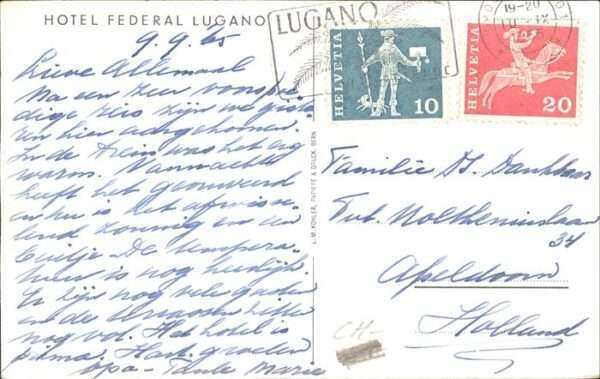 HOTEL FEDERAL LUGANO
9.9.65
Lieve Allemaal
Na een zeer voorspoe-
dige reis zijn we giste-
ren hier aangekomen.
In de trein was het erg
warm. Vannacht
heeft het geonweerd
en nu is het afwisse-
lend zonnig en een
buitje. De tempera-
tuur is nog heerlijk.
Er zijn nog vele gasten
en de terrassen zitten
nog vol. Het hotel is
prima. Hart. groeten
opa - Tante Marie
L. M. KOHLER, PAPIERE & DRUCK, BERN
LUGANO
HELVETIA
10
HELVETIA
20
19-20
Familie
Molthenislaan
34
Apeldoorn
Holland
CH-